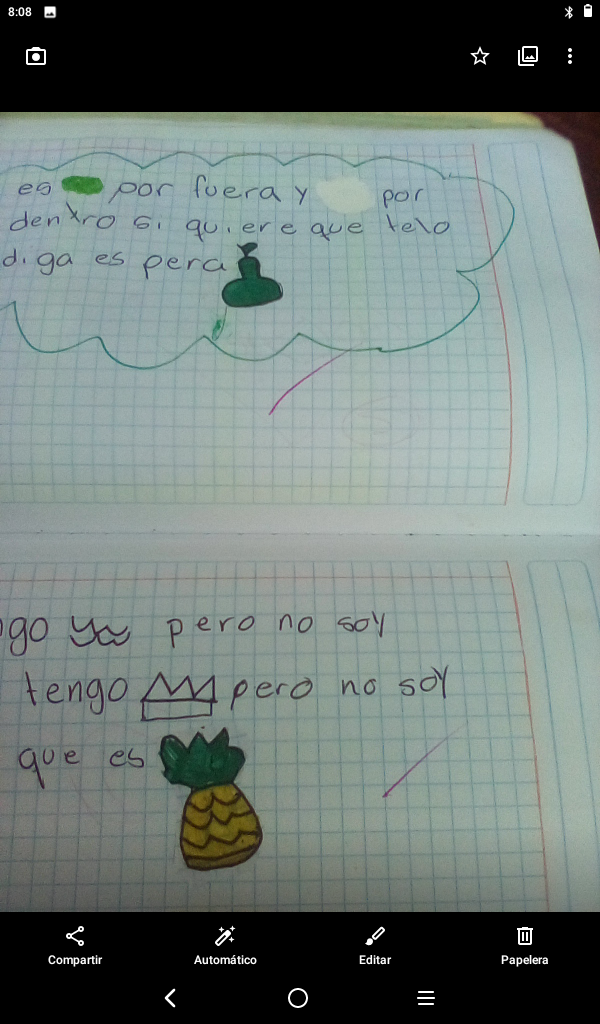 8:08
es por fuera y por
dentro si quiere que telo
diga es pera
go pero no soy
tengo pero no soy
que es
Compartir
Automático
Editar
Papelera